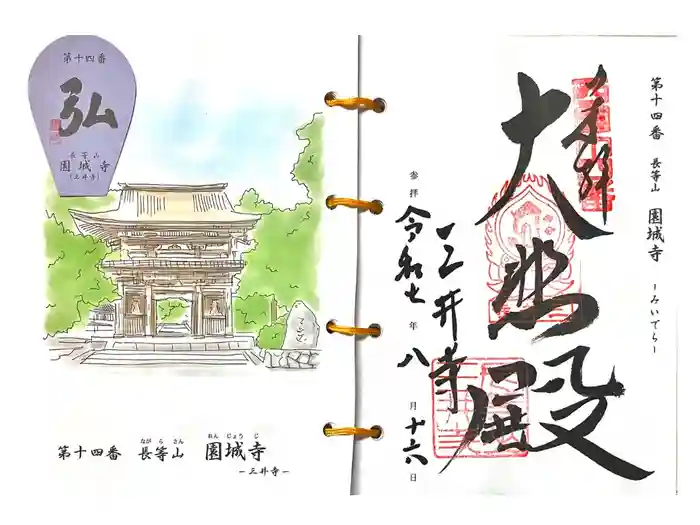 第十四番
弘
長等山
園城寺
(三井寺)
第十四番 長等山 園城寺
ながらさん おんじょうじ
ー三井寺ー
第十四番 長等山 園城寺 ーみいでらー
奉拝
大悲殿
三井寺
参拝 令和七年八月十六日